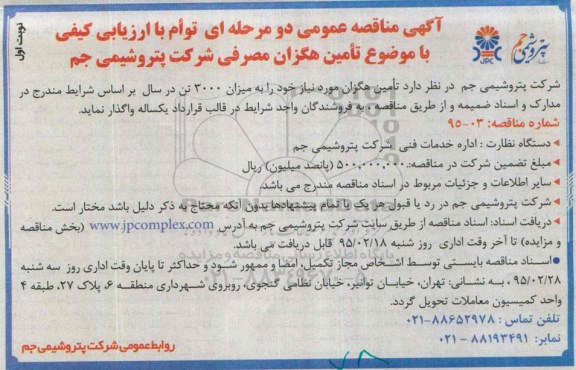 نوبت اول
آگهی مناقصه عمومی دو مرحله ای توأم با ارزیابی کیفی
با موضوع تأمین هگزان مصرفی شرکت پتروشیمی جم
پتروشیمی جم
JPC
شرکت پتروشیمی جم در نظر دارد تأمین هگزان مورد نیاز خود را به میزان ۳۰۰۰ تن در سال بر اساس شرایط مندرج در
مدارک و اسناد ضمیمه و از طریق مناقصه ، به فروشندگان واجد شرایط در قالب قرارداد یکساله واگذار نماید.
شماره مناقصه: ۰۳-۹۵
دستگاه نظارت : اداره خدمات فنی شرکت پتروشیمی جم
مبلغ تضمین شرکت در مناقصه: ۵۰۰,۰۰۰,۰۰۰ (پانصد میلیون) ریال
سایر اطلاعات و جزئیات مربوط در اسناد مناقصه مندرج می باشد.
شرکت پتروشیمی جم در رد یا قبول هر یک یا تمام پیشنهادها بدون آنکه محتاج به ذکر دلیل باشد مختار است.
دریافت اسناد: اسناد مناقصه از طریق سایت شرکت پتروشیمی جم به آدرس www.jpcomplex.com (بخش مناقصه
و مزایده) تا آخر وقت اداری روز شنبه ۹۵/۰۲/۱۸ قابل دریافت می باشد.
اسناد مناقصه بایستی توسط اشخاص مجاز تکمیل، امضا و ممهور شود و حداکثر تا پایان وقت اداری روز سه شنبه
۹۵/۰۲/۲۸ ، به نشانی: تهران، خیابان توانیر، خیابان نظامی گنجوی، روبروی شهرداری منطقه ۶، پلاک ۲۷، طبقه ۴
واحد کمیسیون معاملات تحویل گردد.
تلفن تماس : ۸۸۶۵۲۹۷۸-۰۲۱
نمابر: ۸۸۱۹۳۴۹۱ - ۰۲۱
روابط عمومی شرکت پتروشیمی جم